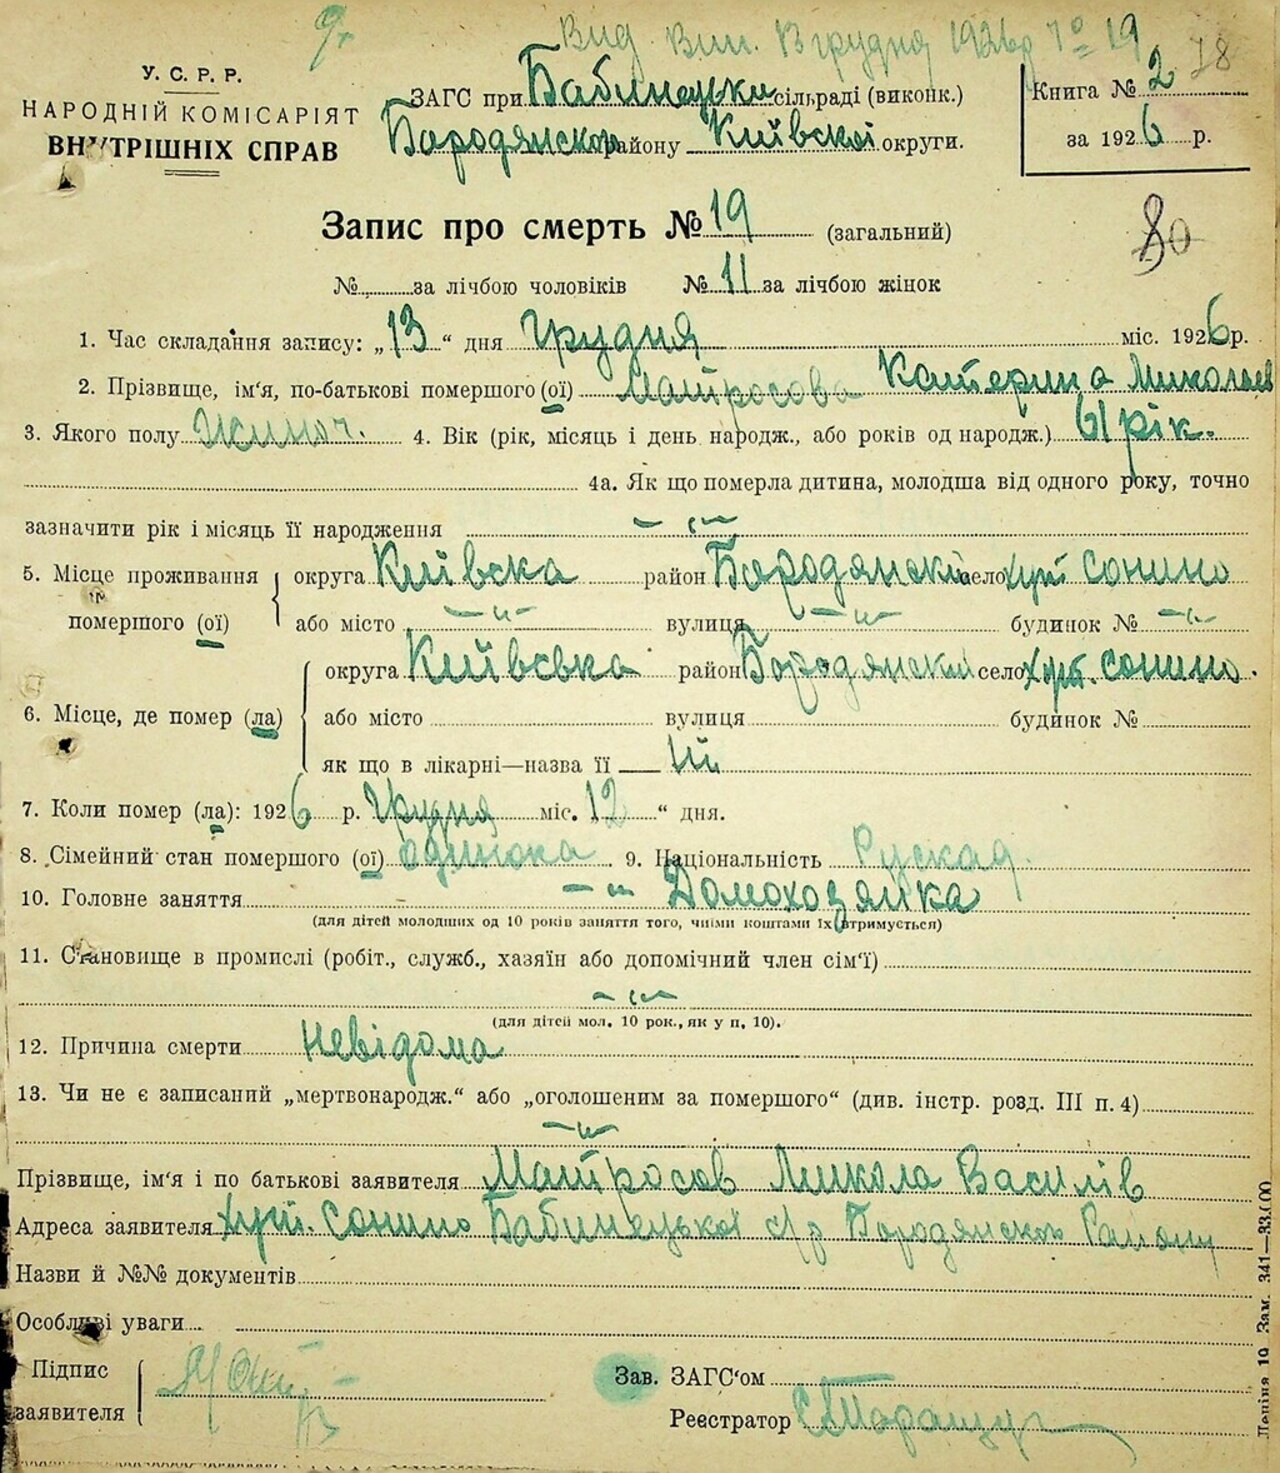 Вид. Вип. 13 грудня 1926 р № 19
78
У. С. Р. Р.
НАРОДНІЙ КОМІСАРІЯТ
ВНУТРІШНІХ СПРАВ
ЗАГС при Бабинецьки сільраді (виконк.)
Бородянском району Київскоі округи.
Книга № 2
за 1926 р.
Запис про смерть № 19 (загальний)
80
№ за лічбою чоловіків № 11 за лічбою жінок
1. Час складання запису: „13“ дня Грудня міс. 1926 р.
2. Прізвище, ім‘я, по-батькові помершого (ої) Матросова Катерина Миколаев
3. Якого полу Жиноч. 4. Вік (рік, місяць і день народж., або років од народж.) 61 рік.
4а. Як що померла дитина, молодша від одного року, точно
зазначити рік і місяць її народження — „ —
5. Місце проживання помершого (ої) округа Київска район Бородянский село хут Сонино
або місто — „ — вулиця — „ — будинок № — „ —
6. Місце, де помер (ла) округа Київська район Бородянский село хут. Сонино.
або місто вулиця будинок №
як що в лікарні—назва її
7. Коли помер (ла): 1926 р. Грудня міс. 12 “ дня.
8. Сімейний стан помершого (ої) одинока. 9. Національність Руская.
10. Головне заняття — „ Домохозяйка
(для дітей молодших од 10 років заняття того, чиїми коштами їх втримується)
11. Становище в промислі (робіт., служб., хазяїн або допомічний член сім‘ї)
— „ —
(для дітей мол. 10 рок., як у п. 10).
12. Причина смерти Невідома
13. Чи не є записаний „мертвонародж.“ або „оголошеним за помершого“ (див. інстр. розд. III п. 4)
— „ —
Прізвище, ім‘я і по батькові заявителя Матросов Микола Василів
Адреса заявителя хут. Сонино Бабинецькоі с/р Бородянского Району
Назви й №№ документів
Особливі уваги
Підпис заявителя
Зав. ЗАГС‘ом
Реєстратор
Леніна 19 Зам. 341—33.000